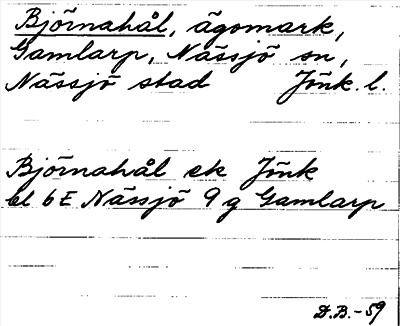 Björnahål, ägomark,
Gamlarp, Nässjö sn,
Nässjö stad Jönk. l.
Björnahål ek Jönk
bl 6E Nässjö 9 g Gamlarp
D.B.-59